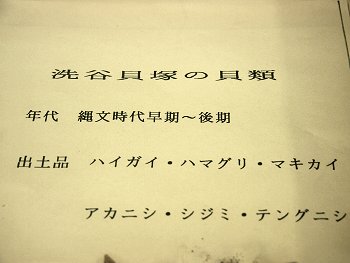 洗谷貝塚の貝類
年代 縄文時代早期～後期
出土品 ハイガイ・ハマグリ・マキカイ
アカニシ・シジミ・テングニシ